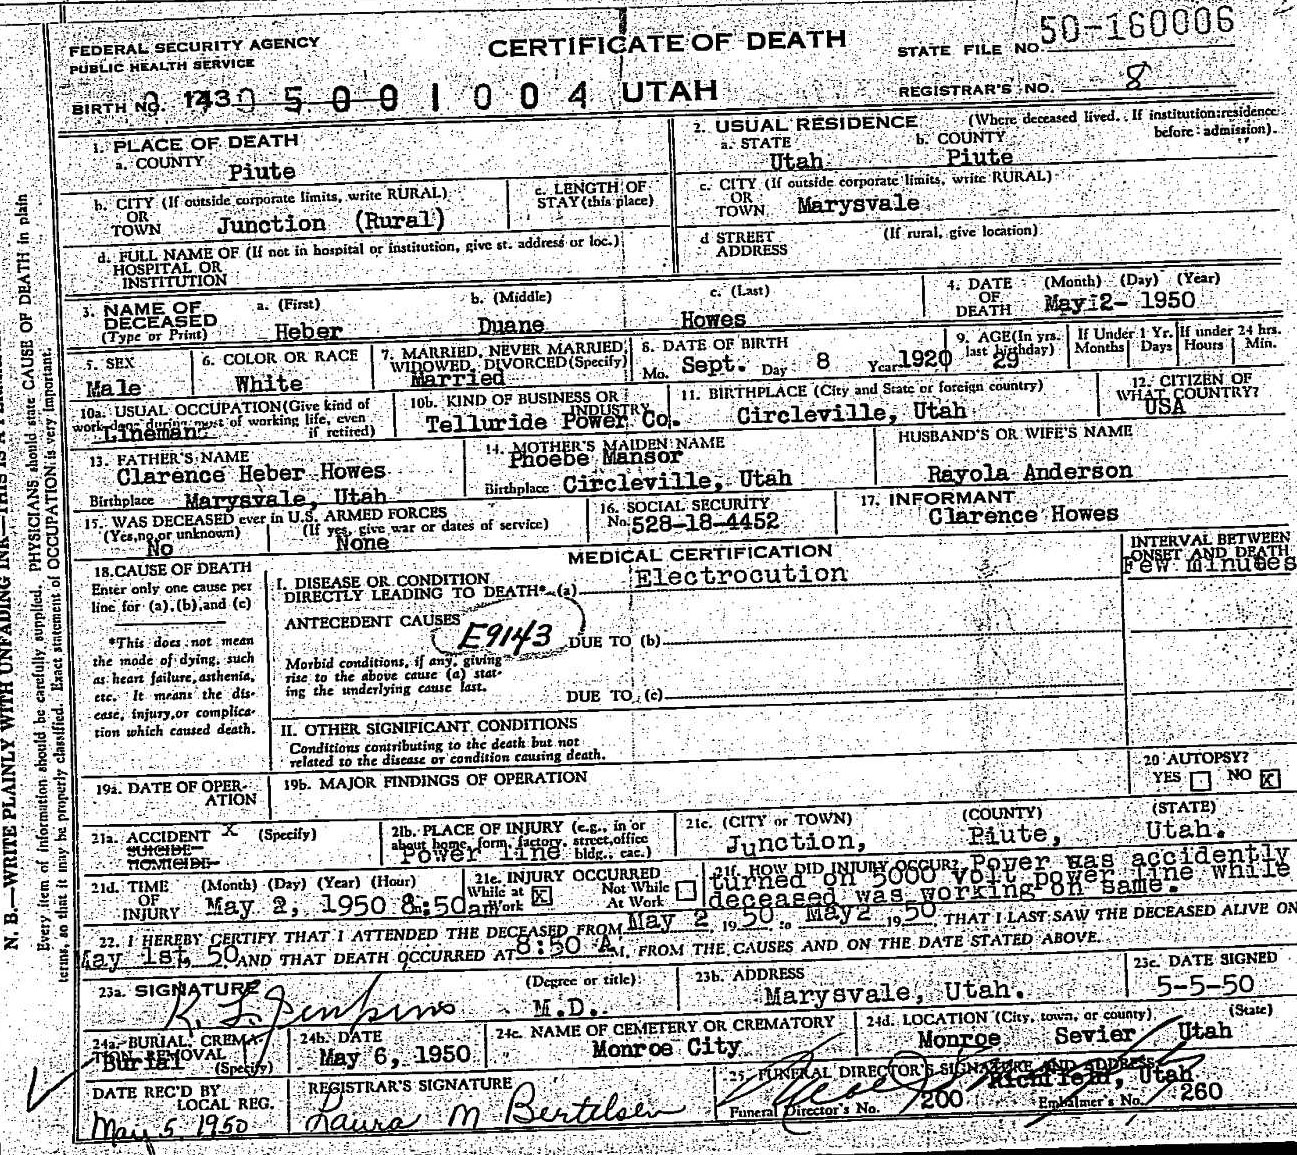 FEDERAL SECURITY AGENCY
PUBLIC HEALTH SERVICE
CERTIFICATE OF DEATH
STATE FILE NO. 50-160006
BIRTH NO. 1004 UTAH
REGISTRAR'S NO. 8
1. PLACE OF DEATH
a. COUNTY
Piute
2. USUAL RESIDENCE (Where deceased lived. If institution: residence before admission).
a. STATE b. COUNTY
Utah Piute
b. CITY (If outside corporate limits, write RURAL)
OR
TOWN Junction (Rural)
c. LENGTH OF
STAY (this place)
c. CITY (If outside corporate limits, write RURAL)
OR
TOWN Marysvale
d. FULL NAME OF (If not in hospital or institution, give st. address or loc.)
HOSPITAL OR
INSTITUTION
d STREET (If rural, give location)
ADDRESS
3. NAME OF
DECEASED
(Type or Print)
a. (First) b. (Middle) c. (Last)
Heber Duane Howes
4. DATE (Month) (Day) (Year)
OF
DEATH May 2- 1950
5. SEX
Male
6. COLOR OR RACE
White
7. MARRIED, NEVER MARRIED,
WIDOWED, DIVORCED (Specify)
Married
8. DATE OF BIRTH
Mo. Sept. Day 8 Year 1920
9. AGE (In yrs.
last birthday)
29
If Under 1 Yr.
Months Days
If under 24 hrs.
Hours Min.
10a. USUAL OCCUPATION (Give kind of
work done during most of working life, even
if retired)
Lineman
10b. KIND OF BUSINESS OR
INDUSTRY
Telluride Power Co.
11. BIRTHPLACE (City and State or foreign country)
Circleville, Utah
12. CITIZEN OF
WHAT COUNTRY?
USA
13. FATHER'S NAME
Clarence Heber Howes
Birthplace Marysvale, Utah
14. MOTHER'S MAIDEN NAME
Phoebe Mansor
Birthplace Circleville, Utah
HUSBAND'S OR WIFE'S NAME
Rayola Anderson
15. WAS DECEASED ever in U.S. ARMED FORCES
(Yes, no, or unknown) (If yes, give war or dates of service)
No None
16. SOCIAL SECURITY
No. 528-18-4452
17. INFORMANT
Clarence Howes
18. CAUSE OF DEATH
Enter only one cause per
line for (a), (b), and (c)
*This does not mean
the mode of dying, such
as heart failure, asthenia,
etc. It means the dis-
ease, injury, or complica-
tion which caused death.
MEDICAL CERTIFICATION
I. DISEASE OR CONDITION
DIRECTLY LEADING TO DEATH* (a) Electrocution
ANTECEDENT CAUSES
E9143
DUE TO (b)
Morbid conditions, if any, giving
rise to the above cause (a) stat-
ing the underlying cause last.
DUE TO (c)
II. OTHER SIGNIFICANT CONDITIONS
Conditions contributing to the death but not
related to the disease or condition causing death.
INTERVAL BETWEEN
ONSET AND DEATH
Few minutes
19a. DATE OF OPER-
ATION
19b. MAJOR FINDINGS OF OPERATION
20 AUTOPSY?
YES NO X
21a. ACCIDENT X (Specify)
SUICIDE
HOMICIDE
21b. PLACE OF INJURY (e.g., in or
about home, farm, factory, street, office
bldg., etc.)
Power line
21c. (CITY or TOWN) (COUNTY) (STATE)
Junction, Piute, Utah.
21d. TIME (Month) (Day) (Year) (Hour)
OF
INJURY May 2, 1950 8:50am
21e. INJURY OCCURRED
While at Work X Not While At Work
21f. HOW DID INJURY OCCUR? Power was accidently
turned on 5000 volt power line while
deceased was working on same.
22. I HEREBY CERTIFY THAT I ATTENDED THE DECEASED FROM May 2 1950 to May 2 1950 THAT I LAST SAW THE DECEASED ALIVE ON
May 1st, 50 AND THAT DEATH OCCURRED AT 8:50 A M. FROM THE CAUSES AND ON THE DATE STATED ABOVE.
23a. SIGNATURE (Degree or title)
Jenkins M.D.
23b. ADDRESS
Marysvale, Utah.
23c. DATE SIGNED
5-5-50
24a. BURIAL, CREMA-
TION REMOVAL
Burial (Specify)
24b. DATE
May 6, 1950
24c. NAME OF CEMETERY OR CREMATORY
Monroe City
24d. LOCATION (City, town, or county) (State)
Monroe Sevier Utah
DATE REC'D BY
LOCAL REG.
May 5, 1950
REGISTRAR'S SIGNATURE
Laura M Bertelsen
25. FUNERAL DIRECTOR'S SIGNATURE AND ADDRESS
Richfield, Utah
Funeral Director's No. 200 Embalmer's No. 260
Every item of information should be carefully supplied. PHYSICIANS should state CAUSE OF DEATH in plain
terms, so that it may be properly classified. Exact statement of OCCUPATION is very important.